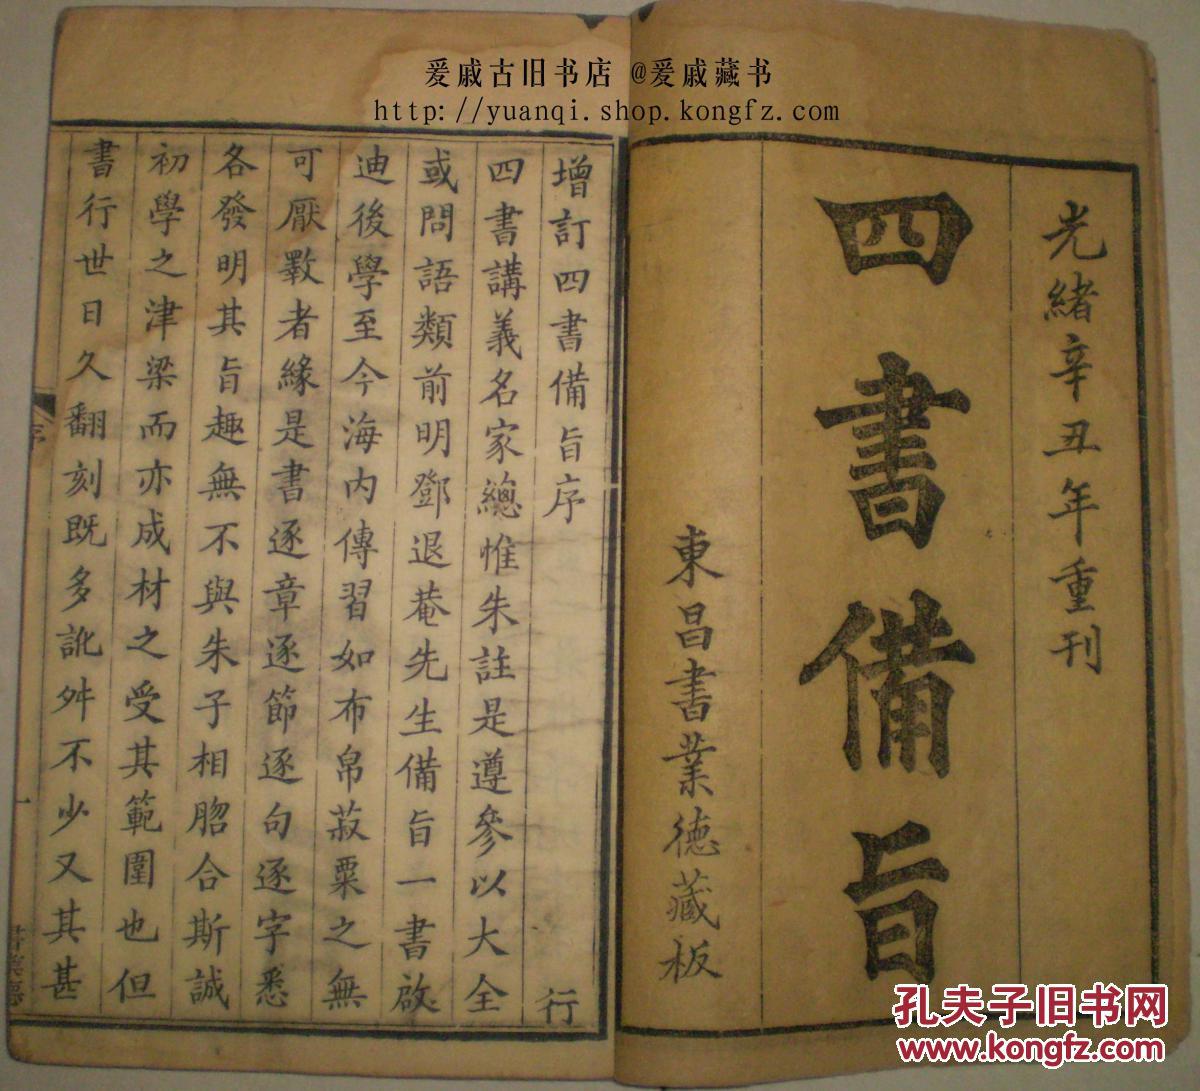 爰戚古旧书店 @爰戚藏书
http://yuanqi.shop.kongfz.com
光緒辛丑年重刊
四書備旨
東昌書業德藏板
增訂四書備旨序 行
四書講義名家總惟朱註是遵參以大全
或問語類前明鄧退菴先生備旨一書啟
迪後學至今海内傳習如布帛菽粟之無
可厭斁者緣是書逐章逐節逐句逐字悉
各發明其旨趣無不與朱子相脗合斯誠
初學之津梁而亦成材之受其範圍也但
書行世日久翻刻既多訛舛不少又其甚
序
一
書業德
孔夫子旧书网
www.kongfz.com